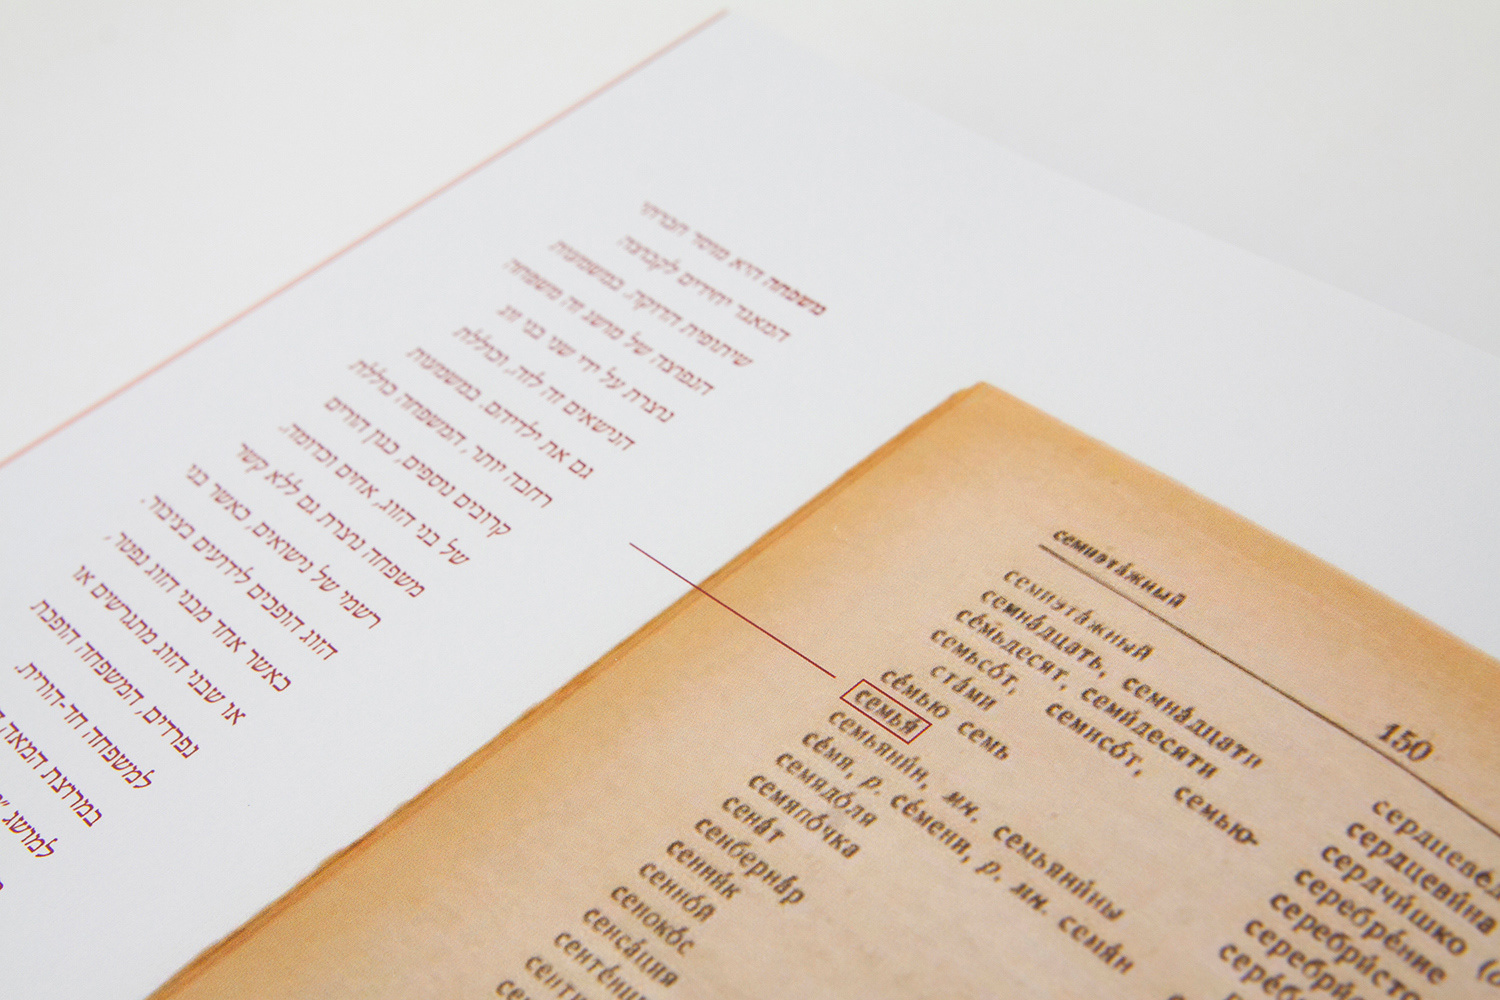 משפחה היא מוסד חברתי
המאגד יחידים לקבוצה
שיתופית הדוקה. במשמעות
הנפוצה של מושג זה משפחה
נוצרת על ידי שני בני זוג
הנישאים זה לזה, וכוללת
גם את ילדיהם. במשמעות
רחבה יותר, המשפחה כוללת
קרובים נוספים, כגון הורים
של בני הזוג, אחים וכדומה.
משפחה נוצרת גם ללא קשר
רשמי של נישואים, כאשר בני
הזוג הופכים לידועים בציבור.
כאשר אחד מבני הזוג נפטר,
או שבני הזוג מתגרשים או
נפרדים, המשפחה הופכת
למשפחה חד-הורית.
במרוצת המאה
למושג
семиэта́жный
150
семиэта́жный
семна́дцать, семна́дцати
се́мьдесят, семи́десяти
семьсо́т, семисо́т, семью-
ста́ми
се́мью семь
семья́
семьяни́н, мн. семьяни́ны
се́мя, р. се́мени, р. мн. семя́н
семядо́ля
семяпо́чка
сена́т
сенберна́р
сенни́к
сенно́й
сеноко́с
сенса́ция
сердцеви́на
серди́шко
серебре́ние